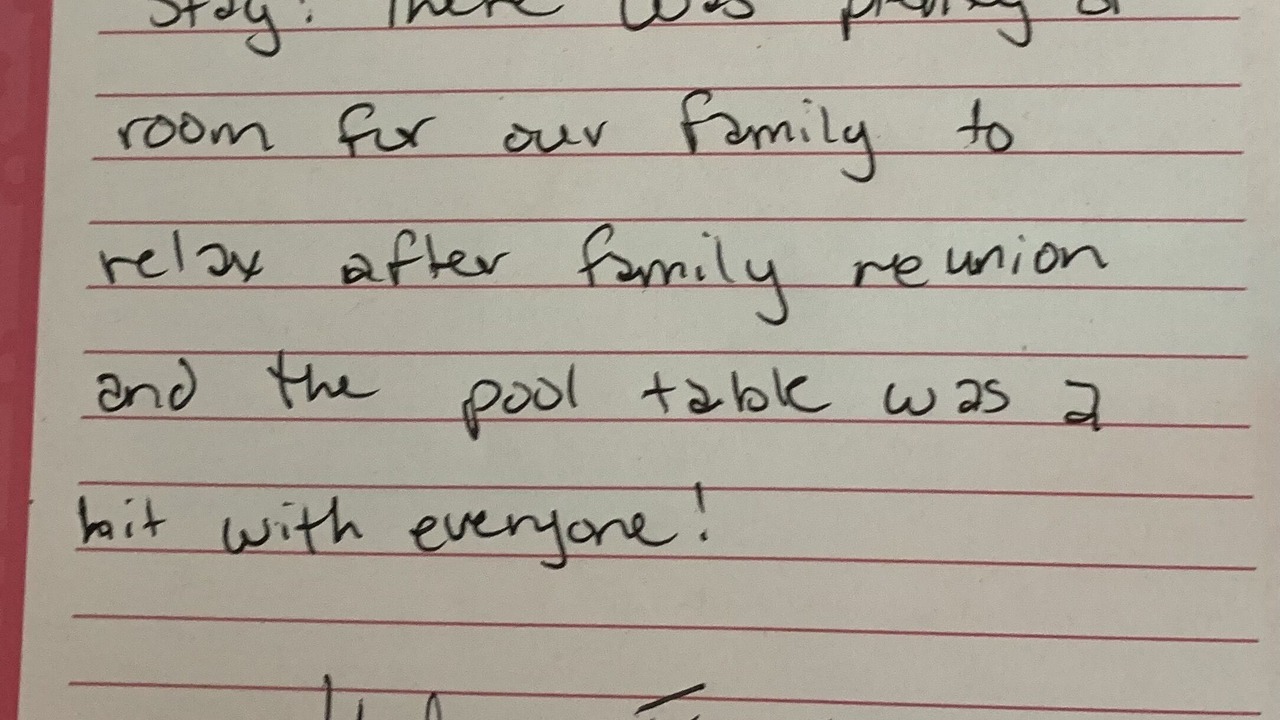 stay! There was plenty of
room for our family to
relax after family reunion
and the pool table was a
hit with everyone!